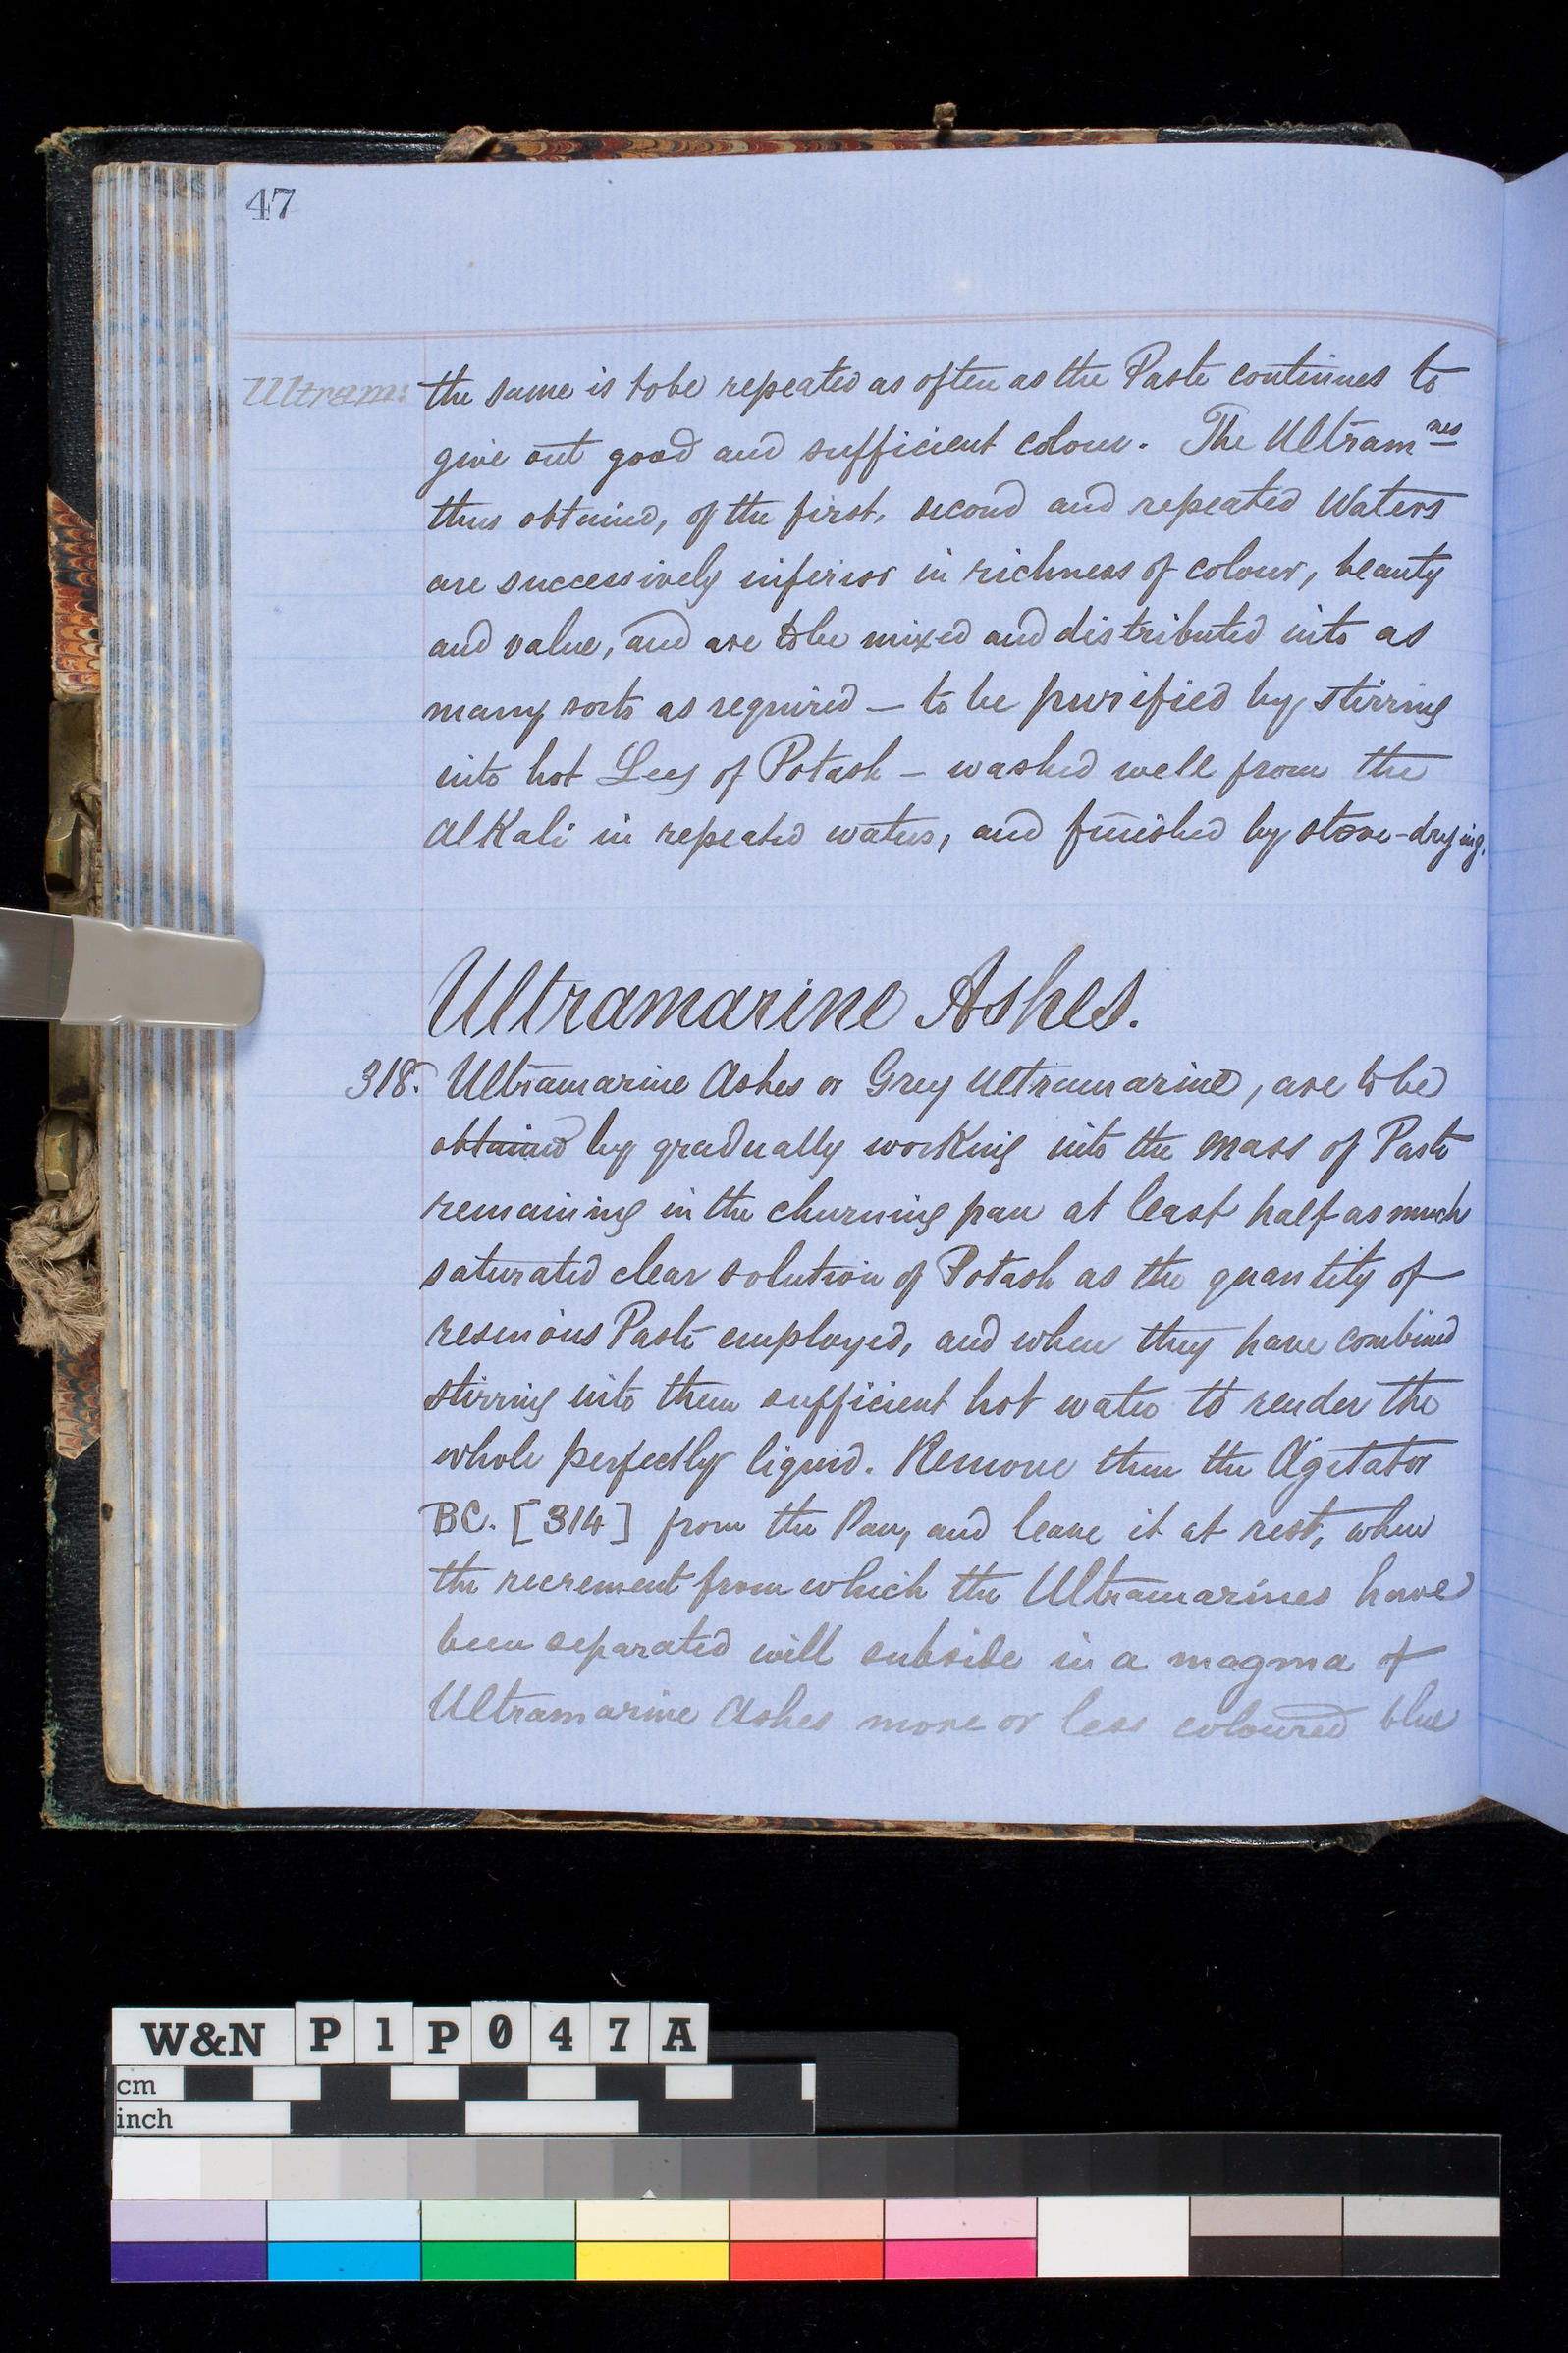 47
Ultram: the same is to be repeated as often as the Paste continues to
give out good and sufficient colour. The Ultram nes
thus obtained, of the first, second and repeated Waters
are successively inferior in richness of colour, beauty
and value, and are to be mixed and distributed into as
many sorts as required – to be purified by stirring
into hot Ley of Potash – washed well from the
AlKali in repeated waters, and finished by stove-drying.
Ultramarine Ashes.
318. Ultramarine Ashes or Grey Ultramarine, are to be
obtained by gradually worKing into the mass of Paste
remaining in the churning pan at least half as much
saturated clear solution of Potash as the quantity of
resinous Paste employed, and when they have combined
stirring into them sufficient hot water to render the
whole perfectly liquid. Remove then the Agitator
BC. [314] from the Pan, and leave it at rest, when
the recrement from which the Ultramarines have
been separated will subside in a magma of
Ultramarine Ashes more or less coloured blue
W&N P1P047A
cm
inch